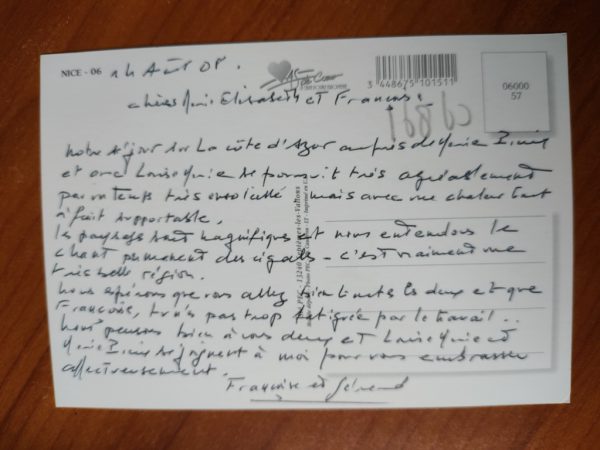 NICE - 06 14 Août 08.
3 448675 101511
06000
57
chères Marie Elisabeth et Françoise,
notre séjour sur la côte d'Azur auprès de Marie
et avec Louise Marie se poursuit très agréablement
par un temps très ensoleillé mais avec une chaleur tout
à fait supportable.
les paysages sont magnifiques et nous entendons le
chant permanent des cigales - c'est vraiment une
très belle région.
nous espérons que vous allez bien toutes les deux et que
Françoise, n'es pas trop fatiguée par le travail..
nous pensons bien à vous deux et Louise Marie et
Marie se joignent à moi pour vous embrasser
affectueusement.
Françoise et Gérard